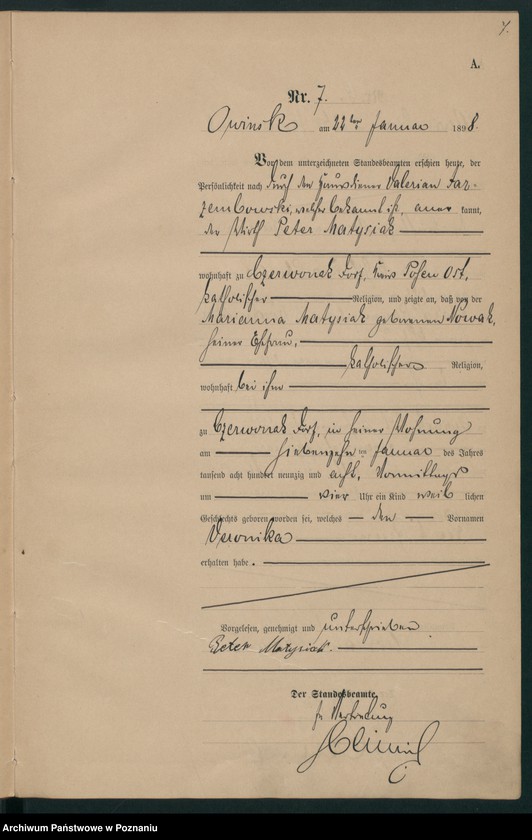 7.
A.
Nr. 7.
Owinsk am 22ten Januar 1898.
Vor dem unterzeichneten Standesbeamten erschien heute, der
Persönlichkeit nach durch den Hausdiener Valerian Jar-
zembowski, welcher bekannt ist, aner kannt,
der Wirth Peter Matysiak
wohnhaft zu Czerwonak Dorf, Kreis Posen Ost,
katholischer Religion, und zeigte an, daß von der
Marianna Matysiak geborenen Nowak,
seiner Ehefrau,
katholischer Religion,
wohnhaft bei ihm
zu Czerwonak Dorf, in seiner Wohnung
am siebenzehnten Januar des Jahres
tausend acht hundert neunzig und acht, Vormittags
um vier Uhr ein Kind weib lichen
Geschlechts geboren worden sei, welches den Vornamen
Veronika
erhalten habe.
Vorgelesen, genehmigt und unterschrieben
Peter Matysiak.
Der Standesbeamte.
In Vertretung
Archiwum Państwowe w Poznaniu